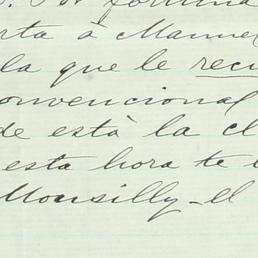 Por fortuna
rta à Manuel
la que le recu
onvencional
de està la cl
esta hora te
Monsilly - el